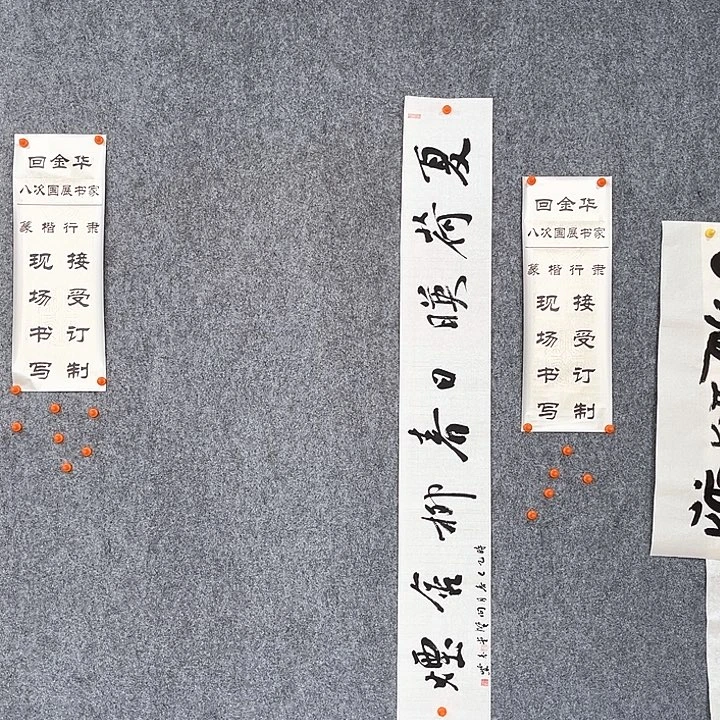 回金华
八次国展书家
篆楷行隶
现场书写
接受订制
夏荷暎日春柳含煙
回金华
八次国展书家
篆楷行隶
现场书写
接受订制